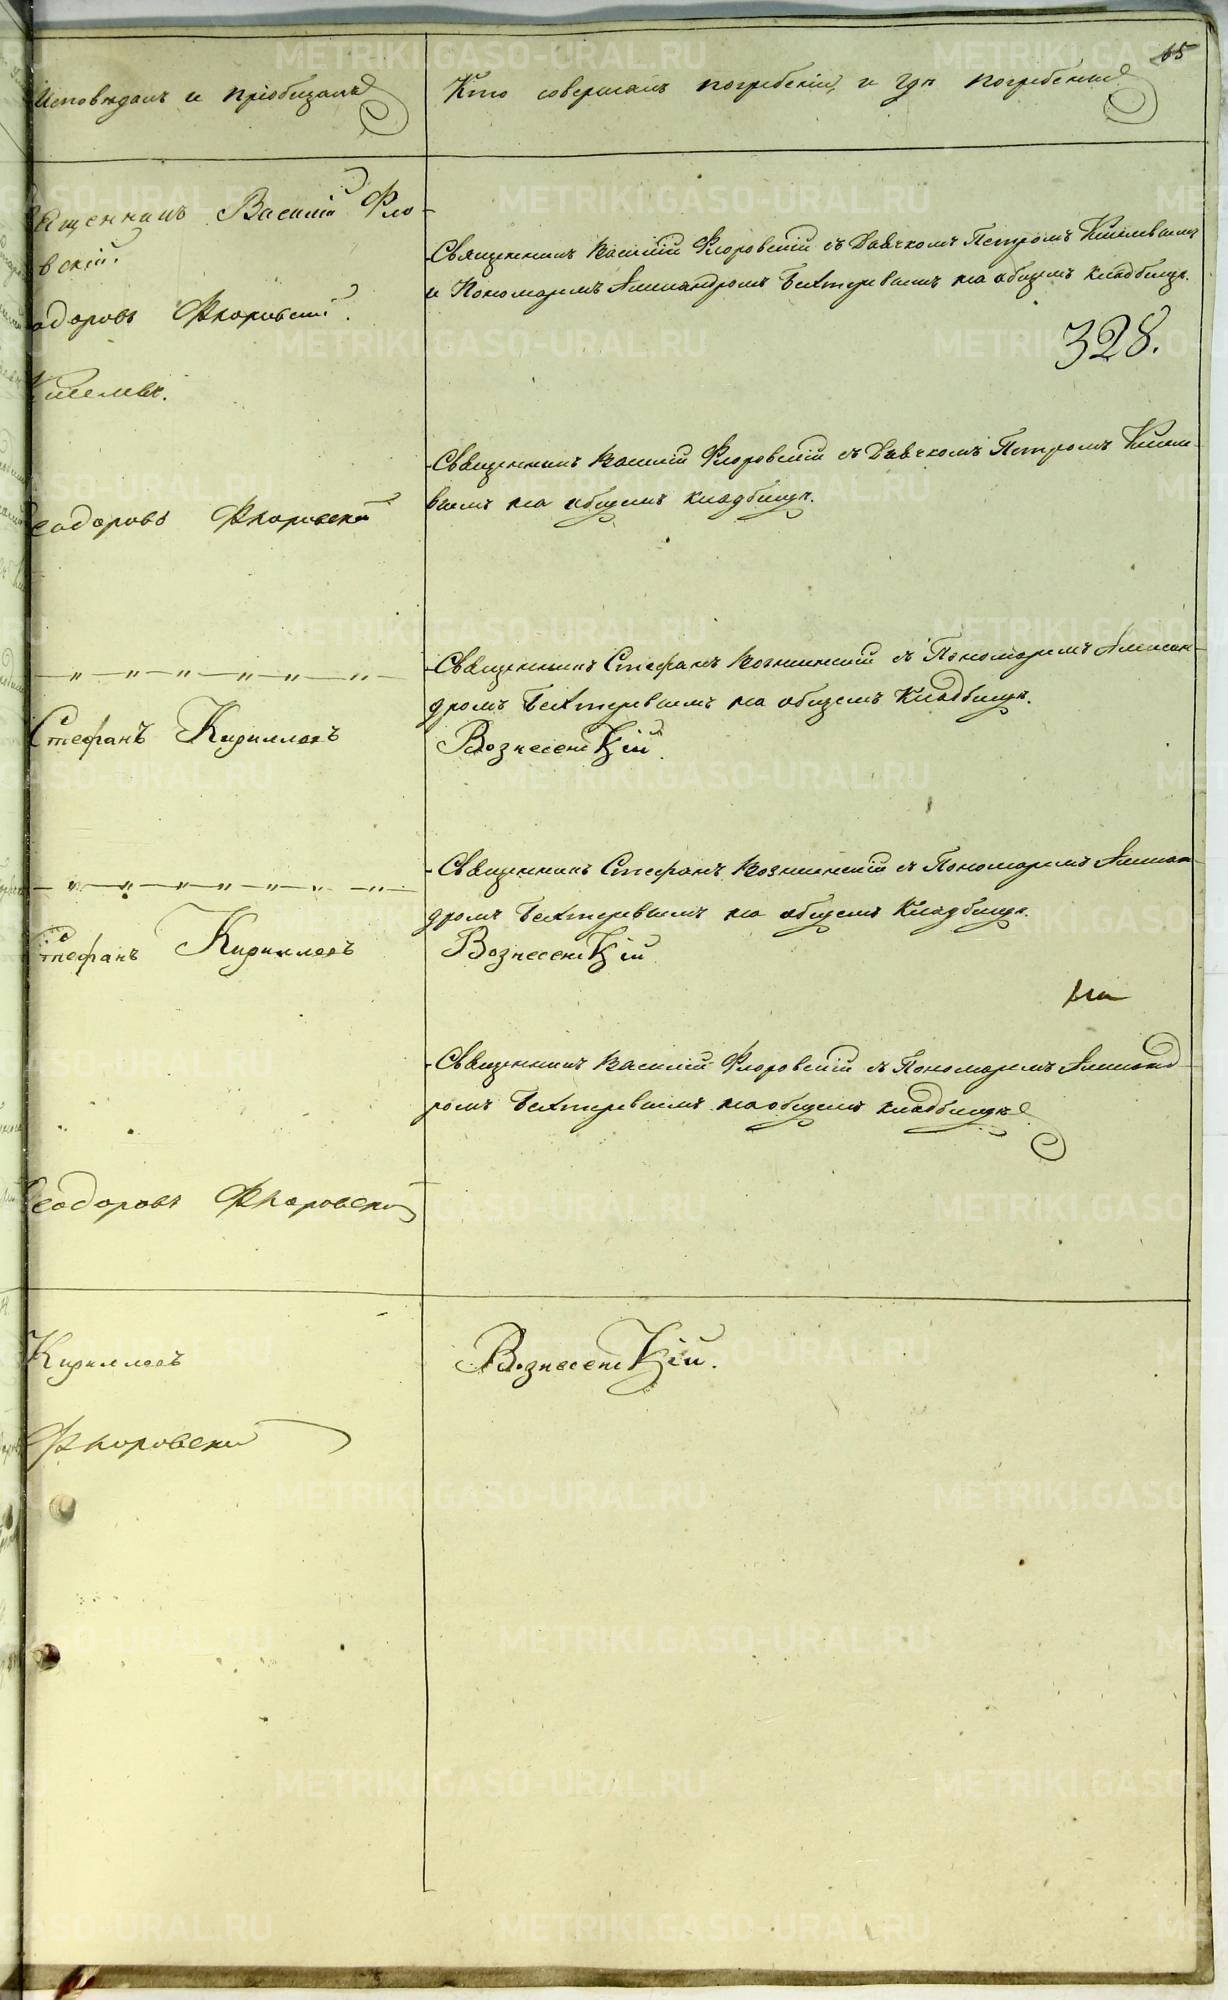 65
Исповѣдалъ и пріобщалъ
Кто совершалъ погребеніе и гдѣ погребены
Священникъ Василій Фло-
вскій.
Священникъ Василій Флоровскій съ Дьячкомъ Петромъ Киселевымъ
и Пономаремъ Александромъ Бехтеревымъ на общемъ кладбищѣ.
одоровъ Флоровскій.
328.
Киселевъ.
Священникъ Василій Флоровскій съ Дьячкомъ Петромъ Кисел-
вымъ на общемъ кладбищѣ.
Ѳеодоровъ Флоровскій
Священникъ Стефанъ Вознесенскій съ Пономаремъ Алексан-
дромъ Бехтеревымъ на общемъ Кладбищѣ.
Стефанъ Кирилловъ Вознесенскій.
Священникъ Стефанъ Вознесенскій съ Пономаремъ Алексан-
дромъ Бехтеревымъ на общемъ Кладбищѣ.
Стефанъ Кирилловъ Вознесенскій
Священникъ Василій Флоровскій съ Пономаремъ Александ-
ромъ Бехтеревымъ на общемъ кладбищѣ
Ѳеодоровъ Флоровскій
Кирилловъ Вознесенскій.
Флоровскій
METRIKI.GASO-URAL.RU